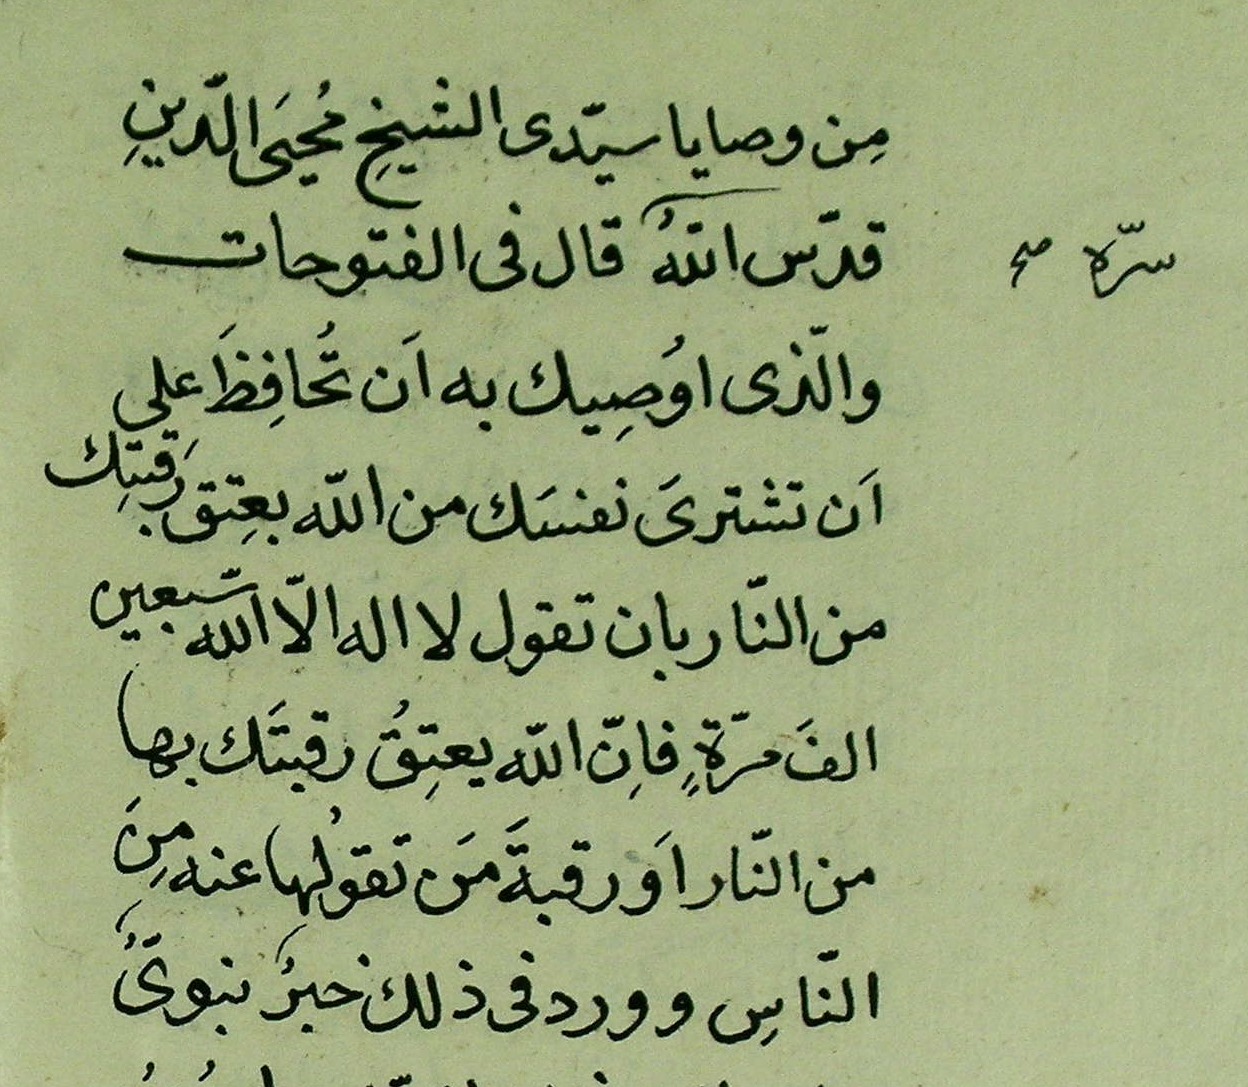 مِن وصايا سيّدى الشيخِ مُحيَى الدّينِ
قدّس اللهُ قال فى الفتوحات
سرّه صح
والّذى اوُصِيك به اَن تُحافِظَ على
اَن تشترىَ نفسَك من اللّه بعِتق رَقبتِك
من النّار بان تقول لا اله الّا اللّه سّبعين
الفَ مرّةٍ فاِنّ اللّه يعتِقُ رقبتَك بها
من النّار اَو رقبةَ مَن تقولُها عنه مِنَ
النّاسِ وورد فى ذلك خبرُ نبوىٌّ